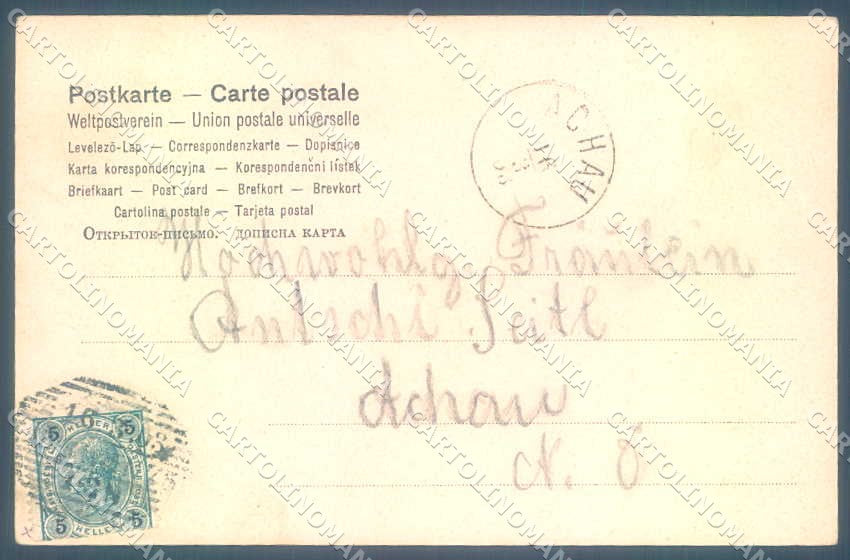 Postkarte — Carte postale
Weltpostverein — Union postale universelle
Levelező-Lap — Correspondenzkarte — Dopisnice
Karta korespondencyjna — Korespondenční lístek
Briefkaart — Post card — Brefkort — Brevkort
Cartolina postale — Tarjeta postal
Открытое-письмо. дописна карта
ACHAU
Hochwohlg. Fräulein
Antschi Seitl
Achau
N. Ö
5 5
5 5
HELLER
CARTOLINOMANIA